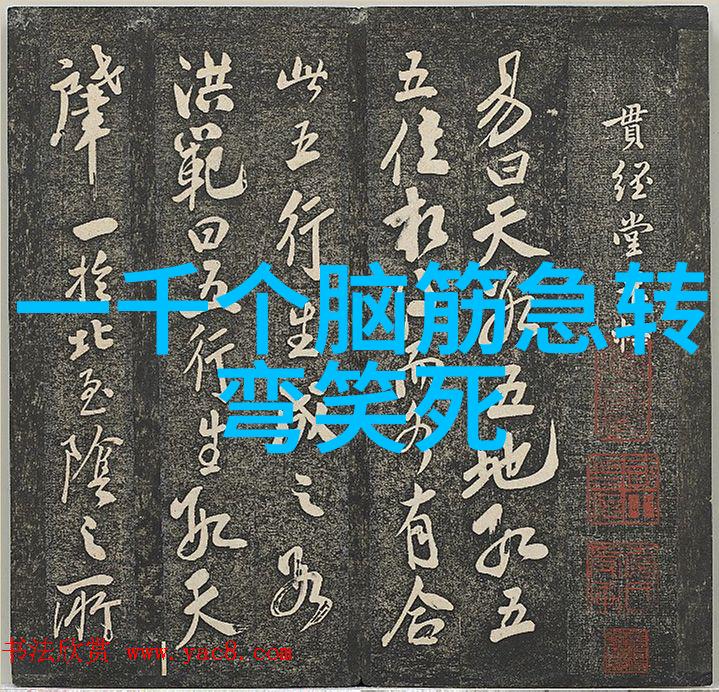 一千个脑筋急转
弯笑死
貫經堂
易曰天數五地數五
五位相得而各有合
此五行生成之數
洪範曰五行生數天
肇一於北至陰之所
书法欣赏 www.yac8.com